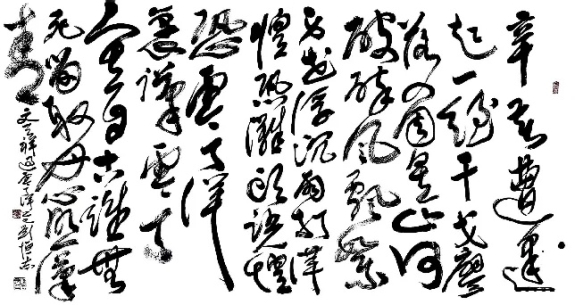 辛苦遭逢
起一经干戈寥
落四周星山河
破碎风飘絮
身世浮沉雨打萍
惶恐滩头说惶
恐零丁洋
里叹零丁
人生自古谁无
死留取丹心照汗
青
文天祥过零丁洋